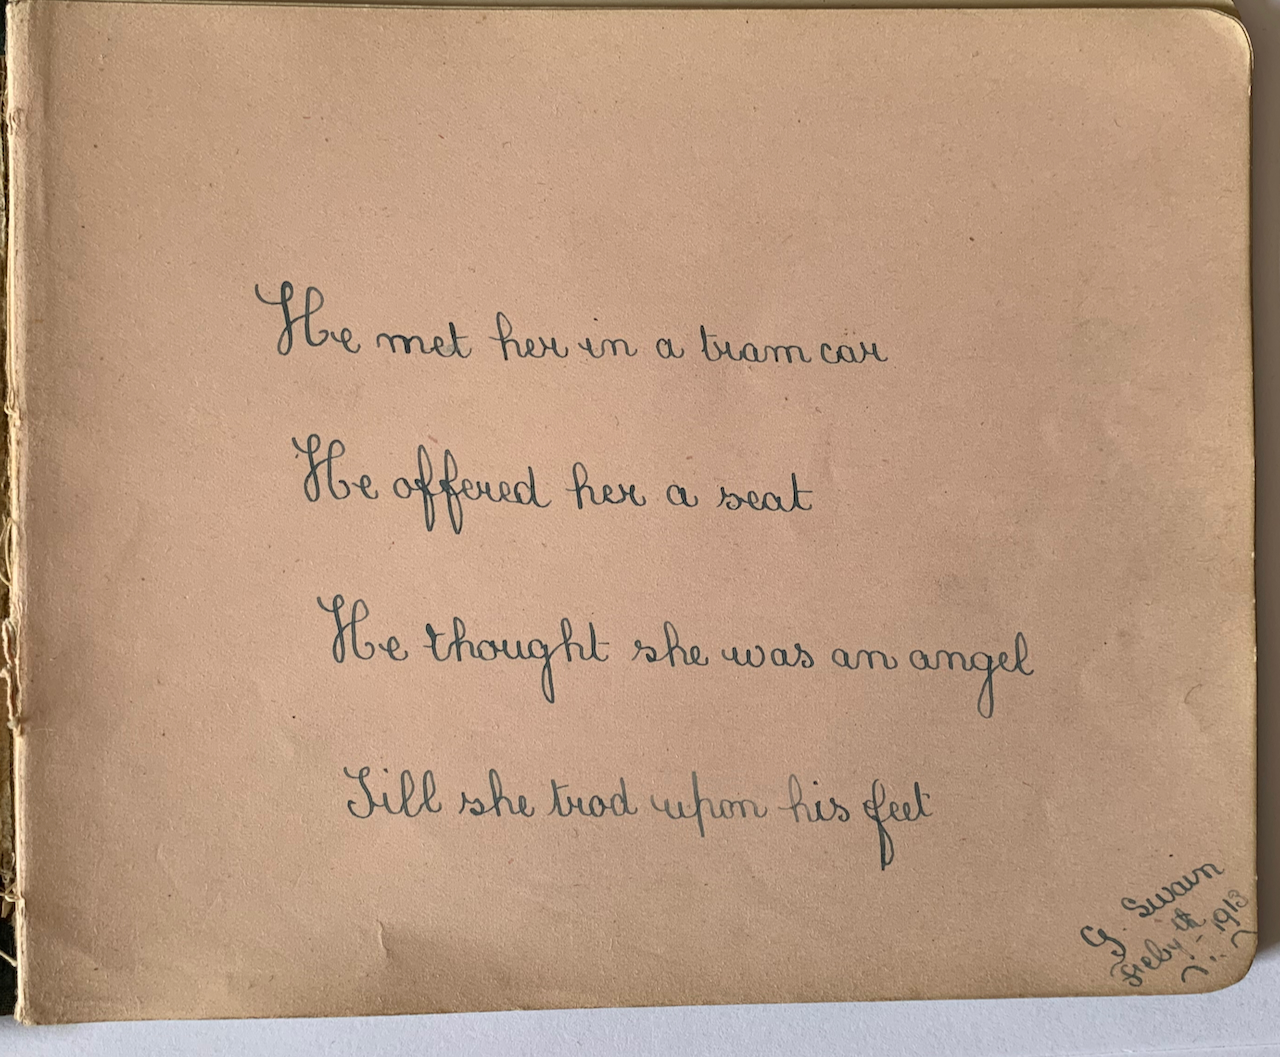 He met her in a tram car
He offered her a seat
He thought she was an angel
Till she trod upon his feet
G. Swain
1913